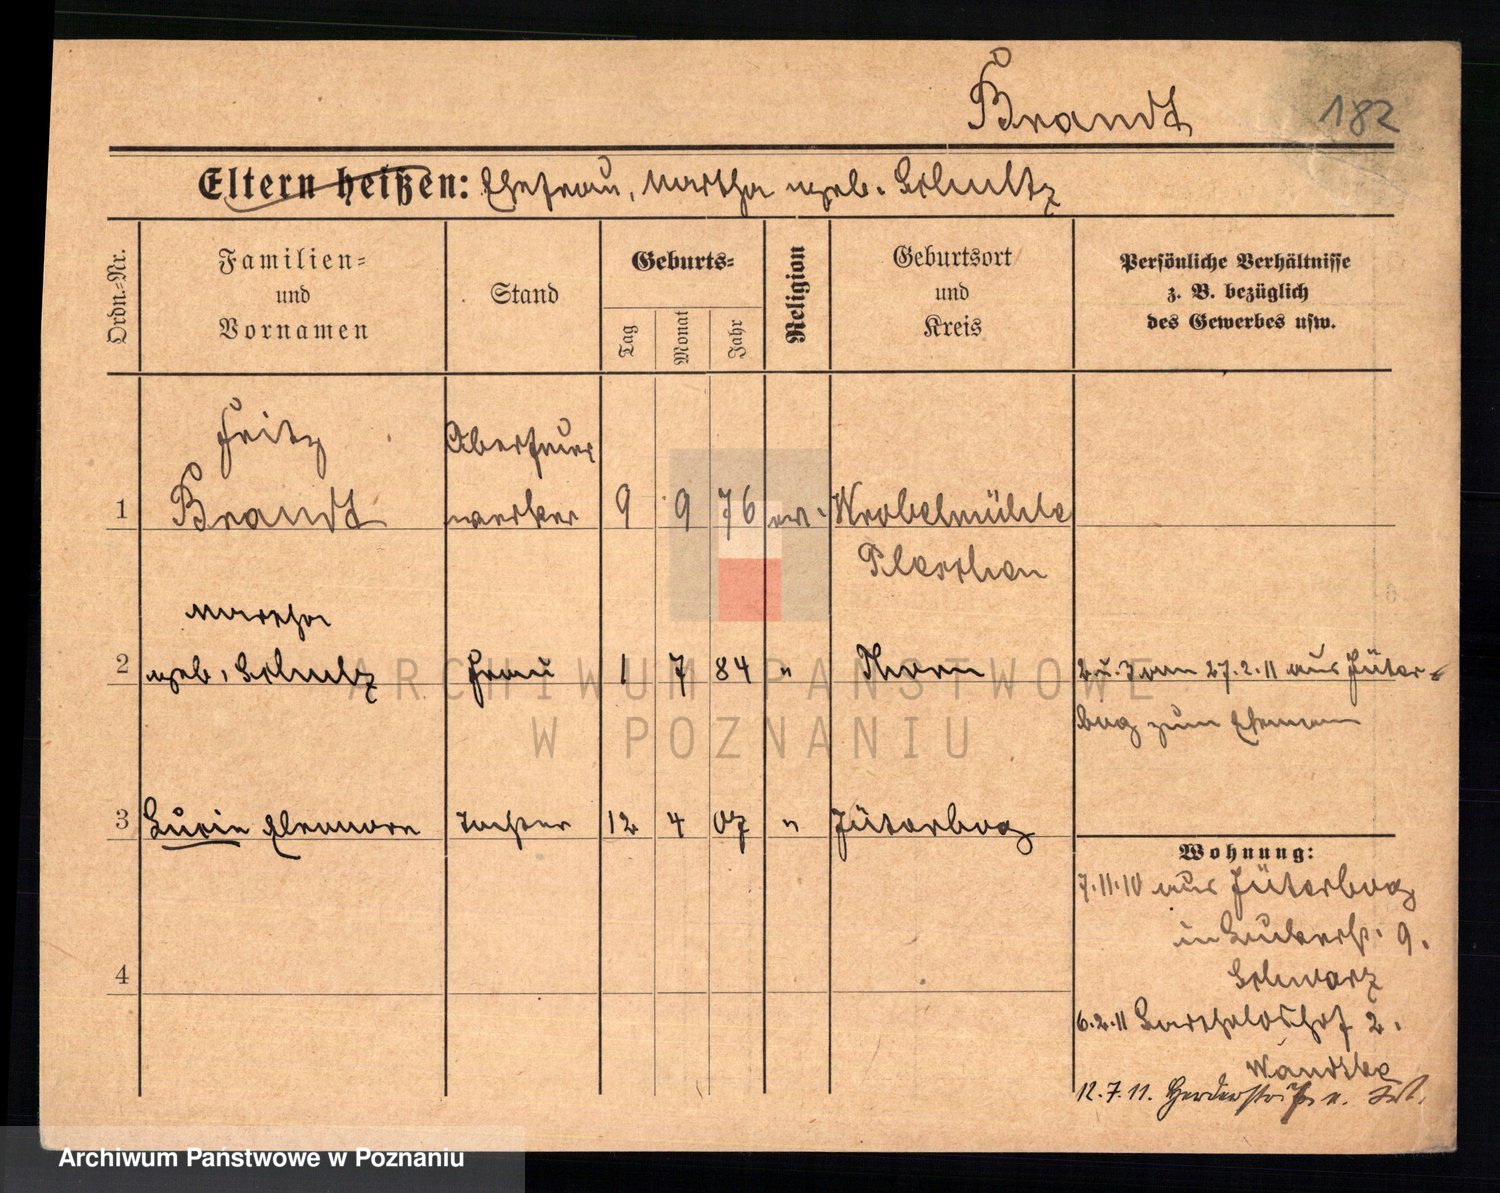 Brandt
182
Eltern heißen: Ehefrau, Martha geb. Schultz
Ordn.-Nr.
Familien-
und
Vornamen
Stand
Geburts-
Tag
Monat
Jahr
Religion
Geburtsort
und
Kreis
Persönliche Verhältnisse
z. B. bezüglich
des Gewerbes usw.
Fritz Oberfeuer
1 Brandt werker 9 9 76 ev. Wrobelmühle
Pleschen
Martha
2 geb. Schultz Frau 1 7 84 " Thorn 2 u. 3 am 27.2.11 aus Jüter-
bog zum Ehemann
3 Eleonore Tochter 12 4 07 " Jüterbog
Wohnung:
7.11.10 aus Jüterbog
in 9.
Schwarz
4
6.2.11 2.
12.7.11.
ARCHIWUM PAŃSTWOWE
W POZNANIU
Archiwum Państwowe w Poznaniu